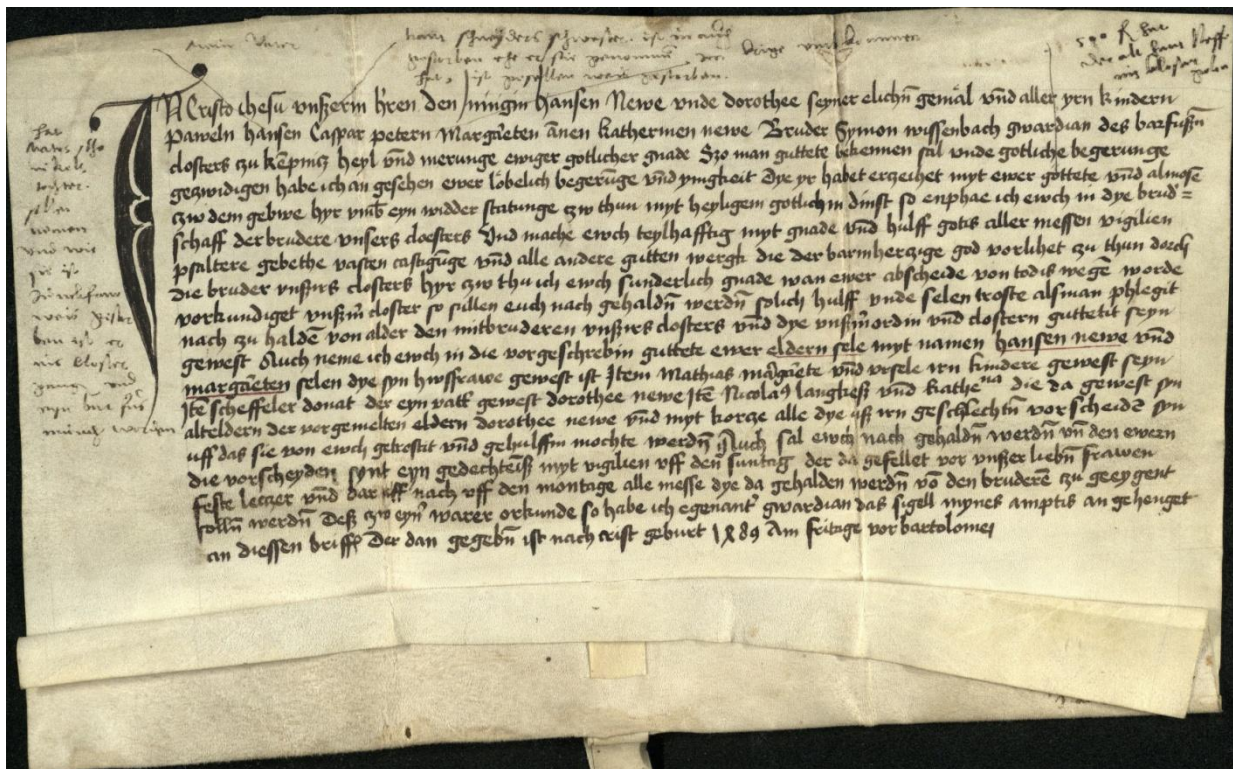 mein vater
hans schneyders schwester ist in auch
gestorben ehe er sie genomen
hat, ist gesellen weis gestorben.
500 fl hat
der alt hans Neff
im kloster
IN Cristo ihesu vnßerm h'ren den Jnnigin hansen Newe vnde dorothee seyner elichn̄ gemal vn̄d aller yrn kindern
Paweln hansen Caspar petern Margareten annen katherinen newe Bruder Symon wissenbach gwardian des barfussn̄
closters czu kempnicz heyl vn̄d merunge ewiger gotlicher gnade Szo man guttete bekennen sal vnde gotliche begerunge
geczwidigen habe ich an gesehen ewer lobelich begerūge vn̄d ynigkeit Dye yr habet erczeiget myt ewer guttete vn̄d almosē
czw dem gebwe hyr vmb eyn widder statunge czw thun myt heyligem gotlichin dinst so enphae ich ewch in dye brud=
schaff der brudere vnsers cloesters Vnd mache ewch teylhafftig myt gnade vn̄d hulff gotis aller messen vigilien
psaltere gebethe vasten castigūge vn̄d alle andere gutten wergk die der barmhercige god vorlihet zu thun dorch
die bruder vnßirs closters hyr czw thu ich ewch sunderlich gnade wan ewer abscheide von todis wegē worde
vorkundiget vnßm̄ closter so sullen euch nach gehaldn̄ werdn̄ solich hulff vnde selen troste alsman phlegit
nach zu haldē von alder den mitbruderen vnßirs closters vn̄d dye vnßm̄ ordin vn̄d clostern guttetit seyn
gewest Auch neme ich ewch in die vorgeschrebin guttete ewer eldern sele myt namen hansen newe vn̄d
margareten selen dye syn hwsfrawe gewest ist Item Mathias margarete vn̄d vrsele irn kindere gewest seyn
Itē scheffeler donat der eyn vatt' gewest dorothee newe Itē Nicolaus langheß vn̄d kathe^na die da gewest syn
alteldern der vorgemelten eldern dorothee newe vn̄d myt korcze alle dye uß irn geschlechtn̄ vorscheidē syn
uff das sie von ewch getrostit vn̄d gehulffin mochte werdn̄ Auch sal ewch nach gehaldn̄ werdn̄ vn̄ den ewern
die vorscheyden synt eyn gedechteniß myt vigilien vff den suntag der da gefellet vor vnßer liebn̄ frawen
feste leczer vn̄d dar uff nach vff den montage alle messe dye da gehalden werdn̄ vō den bruderē zu geeygent
solln̄ werdn̄ Deß czw eyn' warer orkunde so habe ich egenant' gwardian das sigell mynes amptis an gehenget
an diessen briff Der dan gegebn̄ ist nach crist geburt 1489 Am fritage vor bartolomei
hat
vater
tochter
sollen
nemen
vnd wie
sie ist
weis gestor
ben ist er
ins kloster
gangen vnd
eyn
münch worden